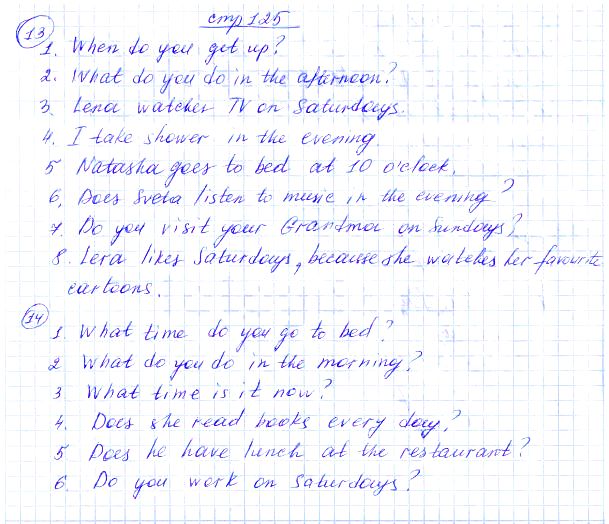 стр 125
13
1. When do you get up?
2. What do you do in the afternoon?
3. Lena watches TV on Saturdays.
4. I take shower in the evening.
5 Natasha goes to bed at 10 o'clock.
6. Does Sveta listen to music in the evening?
7. Do you visit your Grandma on Sundays?
8. Lera likes Saturdays, because she watches her favourite
cartoons.
14
1. What time do you go to bed?
2 What do you do in the morning?
3. What time is it now?
4. Does she read books every day?
5 Does he have lunch at the restaurant?
6. Do you work on Saturdays?